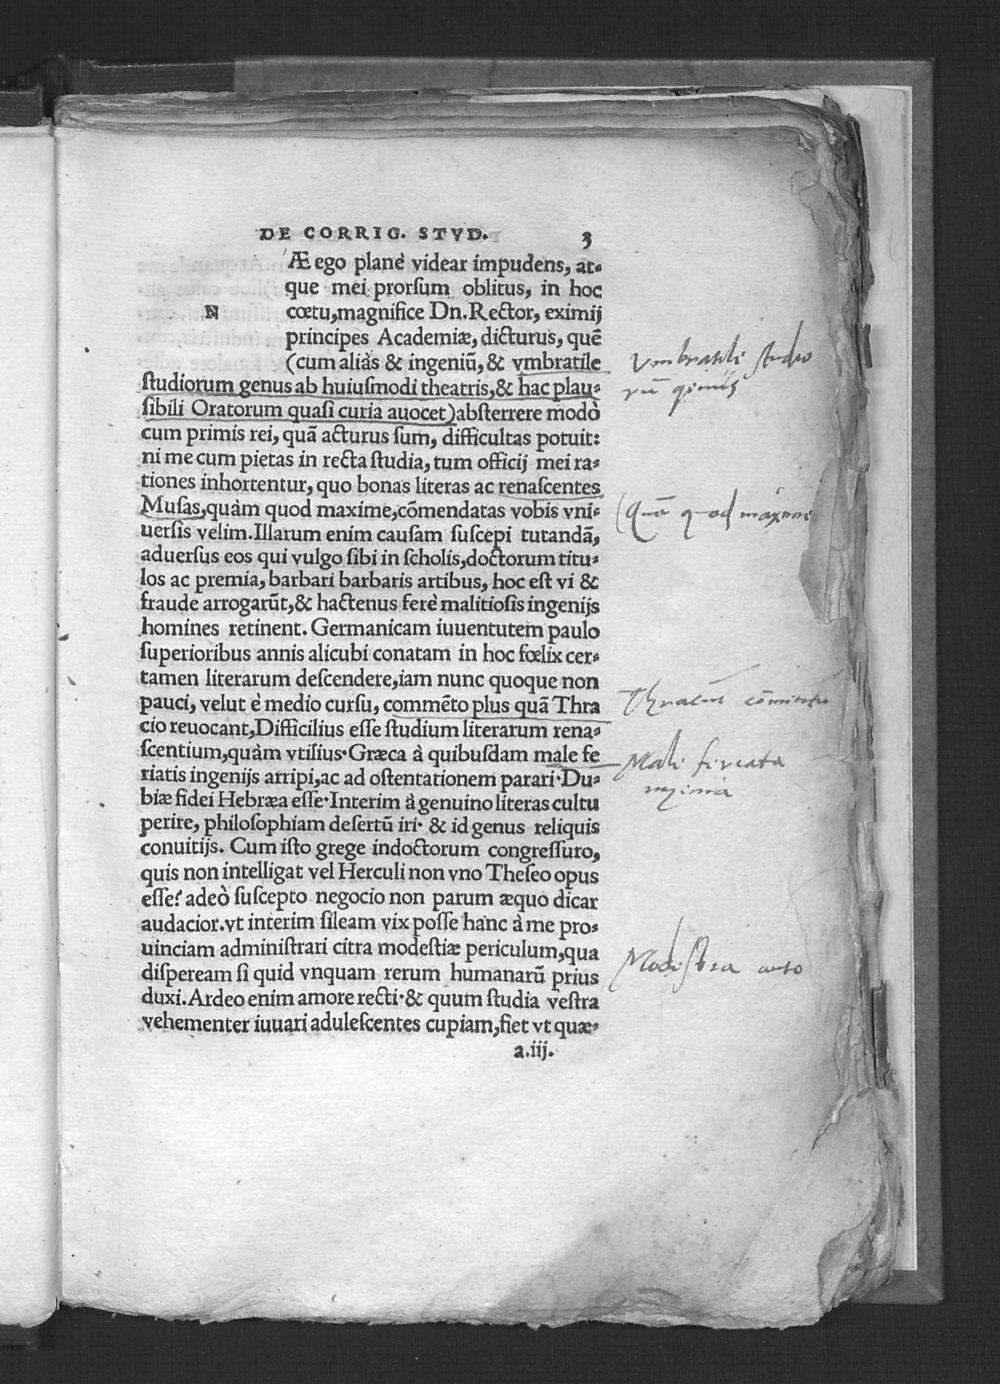 DE CORRIG. STVD. 3
Æ ego planè videar impudens, at⸗
que mei prorsum oblitus, in hoc
N cœtu, magnifice Dn. Rector, eximij
principes Academiæ, dicturus, quẽ
(cum aliàs & ingeniũ, & vmbratile
studiorum genus ab huiusmodi theatris, & hac plau⸗
sibili Oratorum quasi curia auocet) absterrere modò
cum primis rei, quã acturus sum, difficultas potuit:
ni me cum pietas in recta studia, tum officij mei ra⸗
tiones inhortentur, quo bonas literas ac renascentes
Musas, quàm quod maxime, cõmendatas vobis vni⸗
uersis velim. Illarum enim causam suscepi tutandã,
aduersus eos qui vulgo sibi in scholis, doctorum titu⸗
los ac premia, barbari barbaris artibus, hoc est vi &
fraude arrogarũt, & hactenus ferè malitiosis ingenijs
homines retinent. Germanicam iuuentutem paulo
superioribus annis alicubi conatam in hoc fœlix cer⸗
tamen literarum descendere, iam nunc quoque non
pauci, velut è medio cursu, commẽto plus quã Thra
cio reuocant, Difficilius esse studium literarum rena⸗
scentium, quàm vtilius· Græca à quibusdam male fe
riatis ingenijs arripi, ac ad ostentationem parari· Du⸗
biæ fidei Hebræa esse· Interim à genuino literas cultu
perire, philosophiam desertũ iri· & id genus reliquis
conuitijs. Cum isto grege indoctorum congressuro,
quis non intelligat vel Herculi non vno Theseo opus
esse? adeò suscepto negocio non parum æquo dicar
audacior. vt interim sileam vix posse hanc à me pro⸗
uinciam administrari citra modestiæ periculum, qua
dispeream si quid vnquam rerum humanarũ prius
duxi. Ardeo enim amore recti· & quum studia vestra
vehementer iuuari adulescentes cupiam, fiet vt quæ⸗
a.iij.
Vmbratile studio
rũ genus
Quã quod maxime
Thracium cõmentũ
Male feriata
ingenia